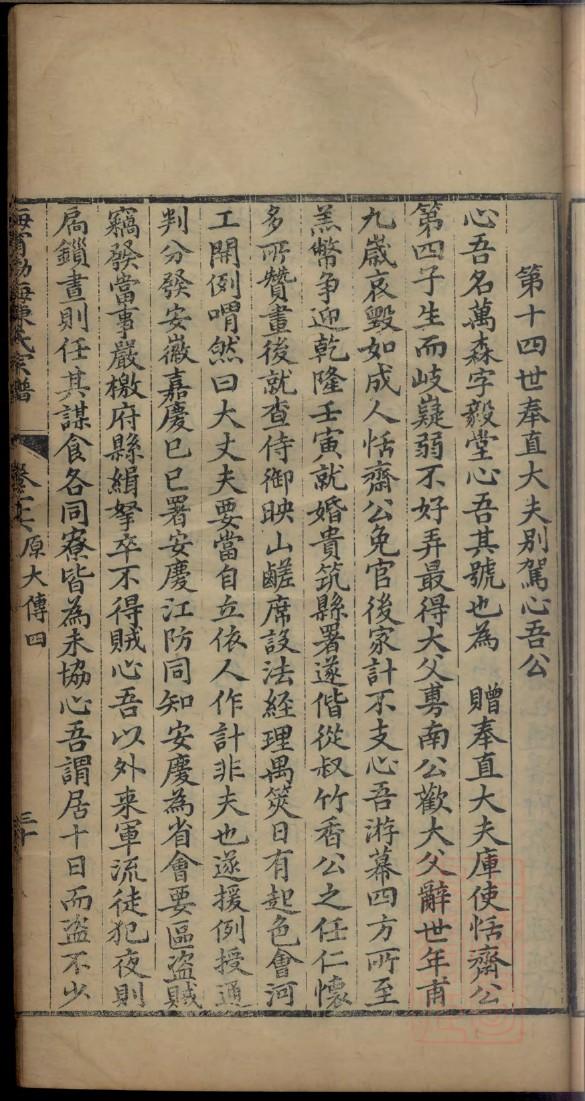 第十四世奉直大夫別駕心吾公
心吾名萬森字毅堂心吾其號也為　贈奉直大夫庫使恬齋公
第四子生而岐嶷弱不好弄最得大父粤南公歡大父辭世年甫
九歲哀毀如成人恬齋公免官後家計不支心吾游幕四方所至
羔幣争迎乾隆壬寅就婚貴筑縣署遂偕從叔竹香公之任仁懷
多所贊畫後就查侍御映山鹺席設法經理禺筴日有起色會河
工開例喟然曰大丈夫要當自立依人作計非夫也遂援例授通
判分發安徽嘉慶己巳署安慶江防同知安慶為省會要區盜賊
竊發當事嚴檄府縣緝拏卒不得賊心吾以外来軍流徒犯夜則
扃鎖晝則任其謀食各同寮皆為未協心吾謂居十日而盜不少
海甯渤海陳氏宗譜
卷二十六
原大傳四
三十